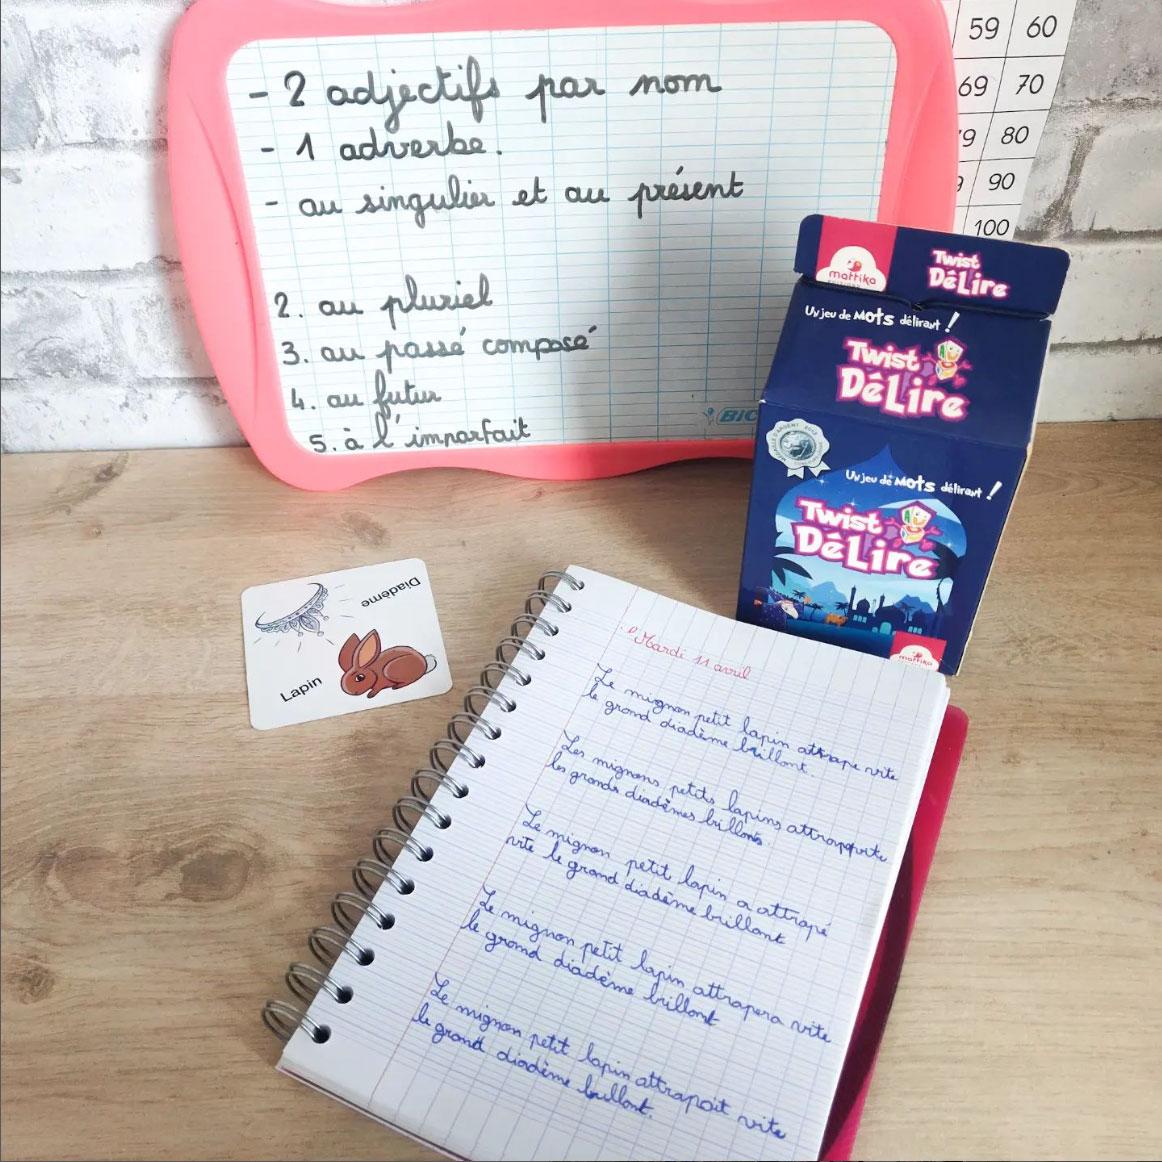 - 2 adjectifs par nom
- 1 adverbe.
- au singulier et au présent
2. au pluriel
3. au passé composé
4. au futur
5. à l'imparfait
BIC
59 60
69 70
79 80
90
100
mattika
Twist
DêLire
Un jeu de Mots délirant !
Twist
DêLire
Un jeu de Mots délirant !
Twist
DêLire
mattika
Diadème
Lapin
Mardi 11 avril
Le mignon petit lapin attrape vite
le grand diadème brillant.
Les mignons petits lapins vite
les grands diadèmes
Le mignon petit lapin a attrapé
vite le grand diadème brillant
Le mignon petit lapin attrapera vite
le grand diadème brillant
Le mignon petit lapin attrapait vite
le grand diadème brillant.